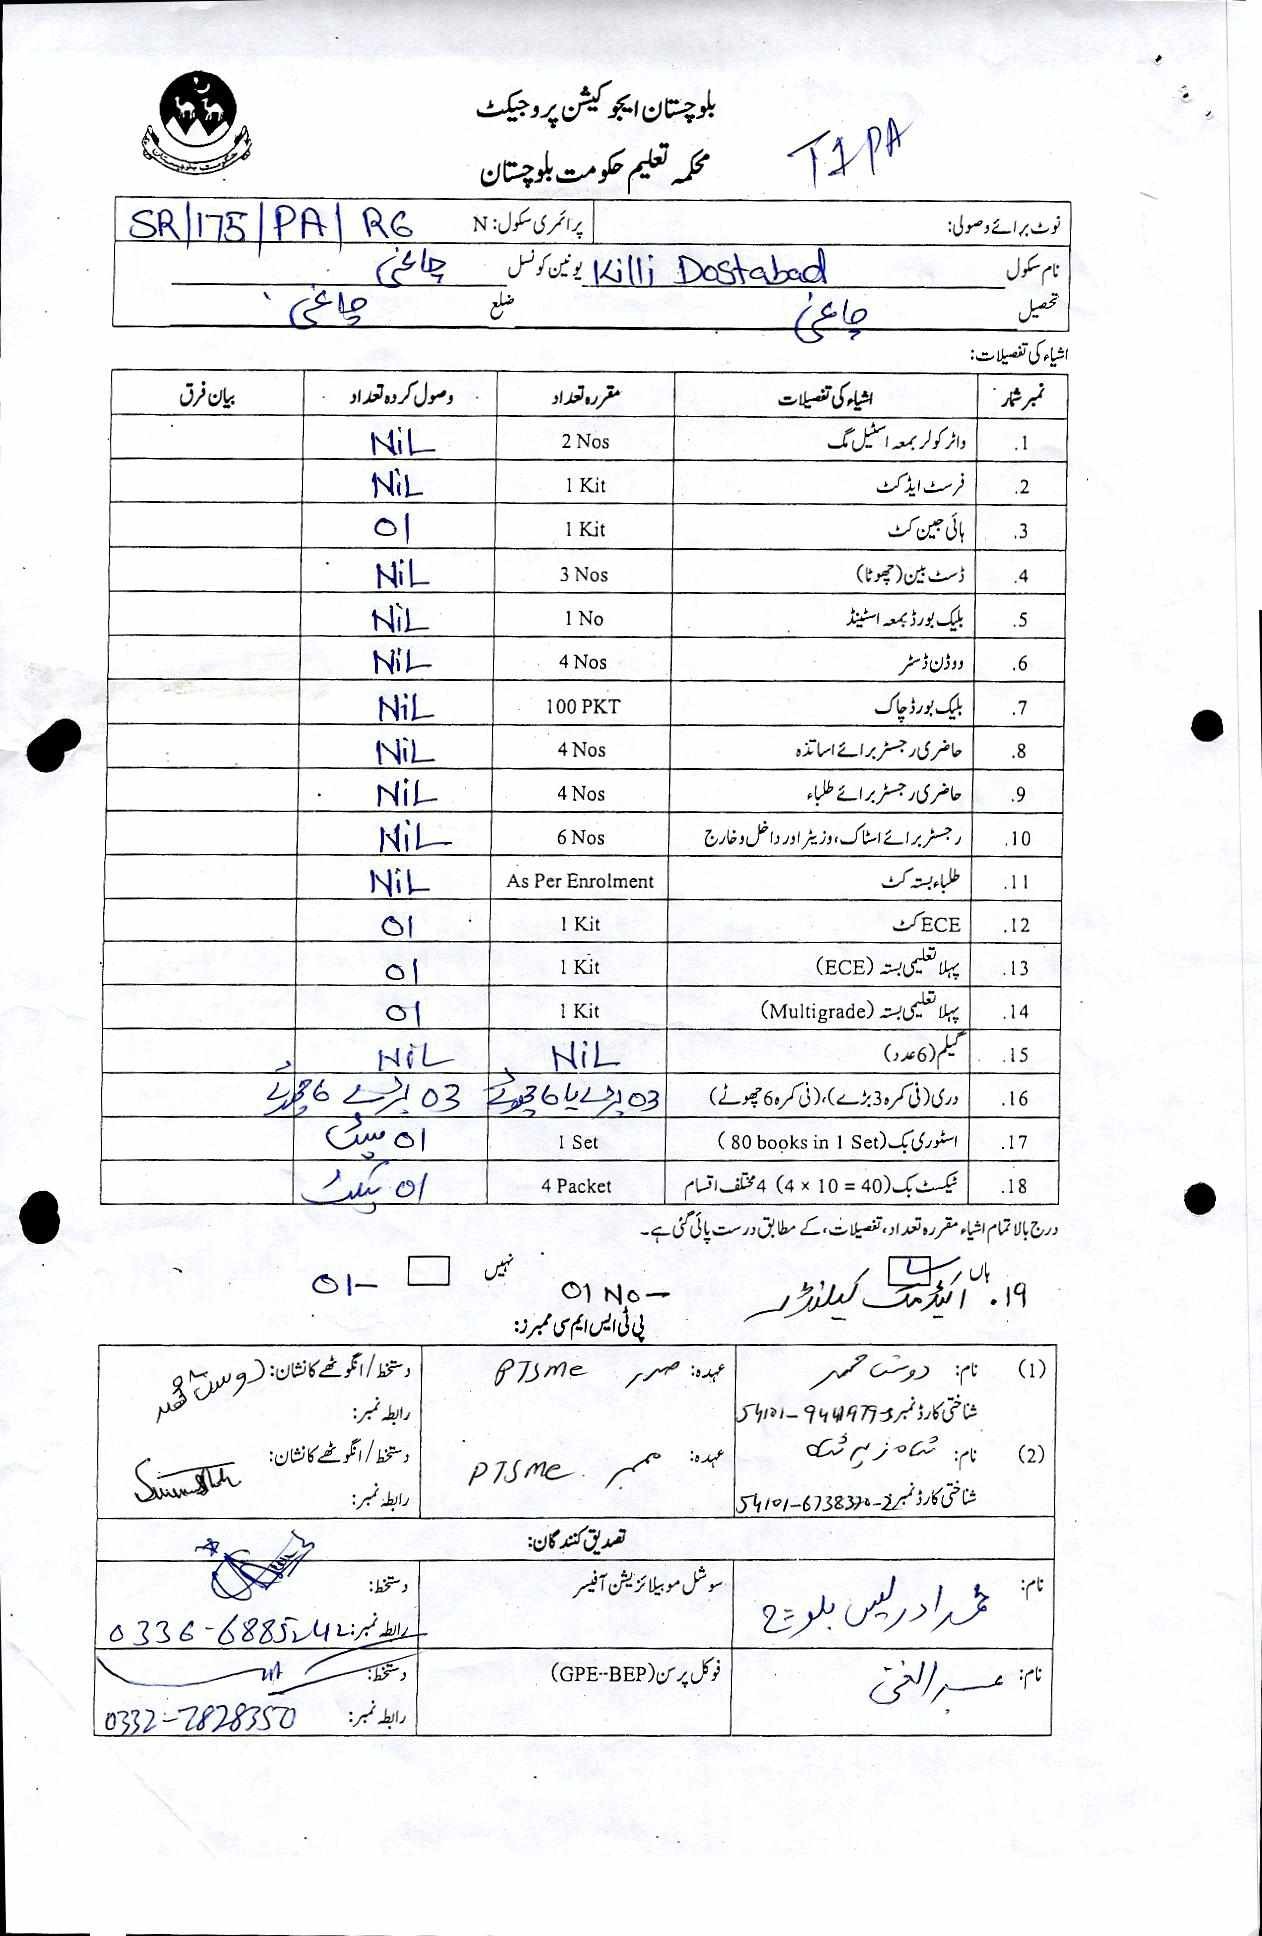 بلوچستان ایجوکیشن پروجیکٹ
محکمہ تعلیم حکومت بلوچستان
T1PA
حکومت بلوچستان
نوٹ برائے وصولی: پرائمری سکول: N SR/175/PA/RG
نام سکول Killi Dostabad یونین کونسل چاغی
تحصیل چاغی ضلع چاغی
اشیاء کی تفصیلات:
نمبر شمار اشیاء کی تفصیلات مقررہ تعداد وصول کردہ تعداد بیان فرق
1. واٹر کولر بمعہ اسٹیل مگ 2 Nos NiL
2. فرسٹ ایڈ کٹ 1 Kit NiL
3. ہائی جین کٹ 1 Kit 01
4. ڈسٹ بین (چھوٹا) 3 Nos NiL
5. بلیک بورڈ بمعہ اسٹینڈ 1 No NiL
6. ووڈن ڈسٹر 4 Nos NiL
7. بلیک بورڈ چاک 100 PKT NiL
8. حاضری رجسٹر برائے اساتذہ 4 Nos NiL
9. حاضری رجسٹر برائے طلباء 4 Nos NiL
10. رجسٹر برائے اسٹاک، وزیٹر اور داخل و خارج 6 Nos NiL
11. طلباء بستہ کٹ As Per Enrolment NiL
12. ECE کٹ 1 Kit 01
13. پہلا تعلیمی بستہ (ECE) 1 Kit 01
14. پہلا تعلیمی بستہ (Multigrade) 1 Kit 01
15. گیلم (6 عدد) NiL NiL
16. دری (فی کمرہ 3 بڑے)، (فی کمرہ 6 چھوٹے) 03 بڑے یا 6 چھوٹے 03 بڑے 6 چھوٹے
17. اسٹوری بک (80 books in 1 Set) 1 Set 01 سیٹ
18. ٹیکسٹ بک (4 × 10 = 40) 4 مختلف اقسام 4 Packet 01 پیکٹ
درج بالا تمام اشیاء مقررہ تعداد، تفصیلات، کے مطابق درست پائی گئی ہے۔
ہاں نہیں
۱۹. اکیڈمک کیلنڈر 01 No - 01-
پی ٹی ایس ایم سی ممبرز:
(1) نام: دوست محمد عہدہ: صدر PTSMC دستخط/انگوٹھے کا نشان: دوست محمد
شناختی کارڈ نمبر رابطہ نمبر:
(2) نام: عہدہ: ممبر PTSMC دستخط/انگوٹھے کا نشان:
شناختی کارڈ نمبر رابطہ نمبر:
تصدیق کنندگان:
نام: محمد ادریس بلوچ سوشل موبیلائزیشن آفیسر دستخط:
رابطہ نمبر: 0336-6885242
نام: عبدالغنی فوکل پرسن (GPE--BEP) دستخط:
رابطہ نمبر: 0332-7828350